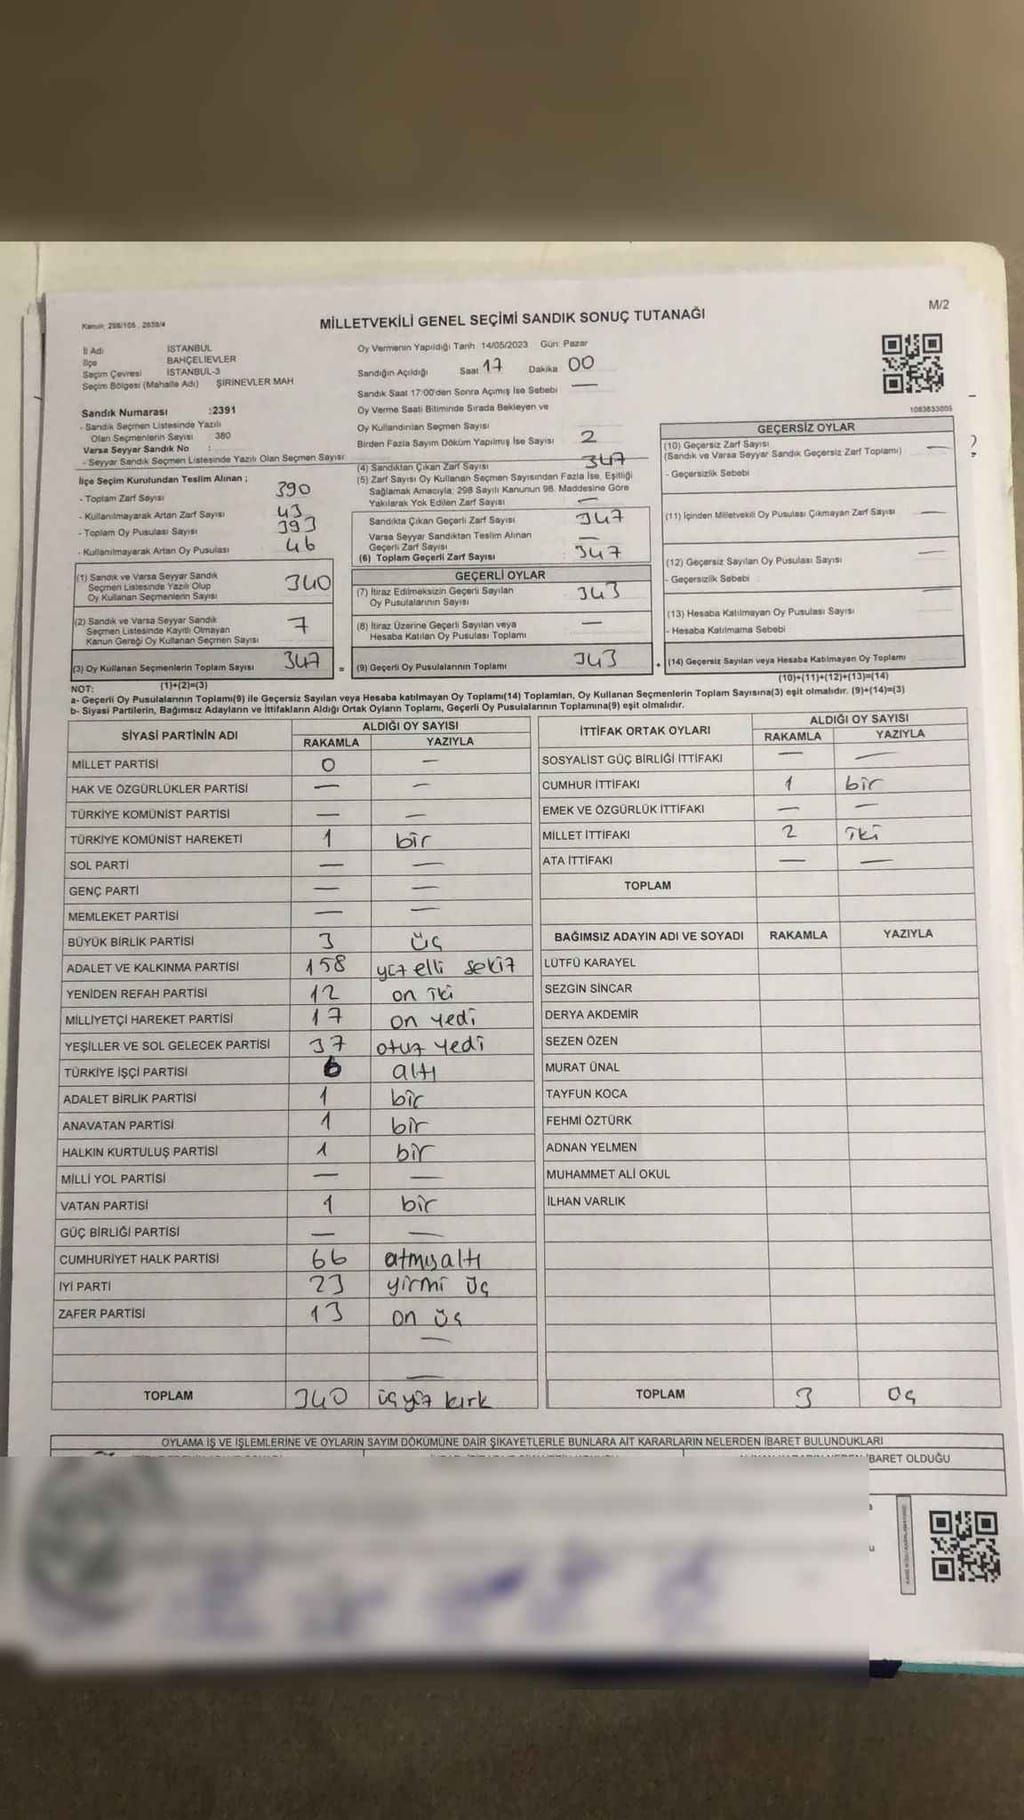 Kanun: 298/105 , 2839/4
M/2
MİLLETVEKİLİ GENEL SEÇİMİ SANDIK SONUÇ TUTANAĞI
İl Adı İSTANBUL
İlçe BAHÇELİEVLER
Seçim Çevresi İSTANBUL-3
Seçim Bölgesi (Mahalle Adı) ŞİRİNEVLER MAH
Sandık Numarası :2391
- Sandık Seçmen Listesinde Yazılı
Olan Seçmenlerin Sayısı 380
Varsa Seyyar Sandık No :
- Seyyar Sandık Seçmen Listesinde Yazılı Olan Seçmen Sayısı
Oy Vermenin Yapıldığı Tarih 14/05/2023 Gün: Pazar
Sandığın Açıldığı Saat 17 Dakika 00
Sandık Saat 17:00'den Sonra Açımış İse Sebebi —
Oy Verme Saati Bitiminde Sırada Bekleyen ve
Oy Kullandırılan Seçmen Sayısı
Birden Fazla Sayım Döküm Yapılmış İse Sayısı 2
1083833005
İlçe Seçim Kurulundan Teslim Alınan ;
- Toplam Zarf Sayısı 390
- Kullanılmayarak Artan Zarf Sayısı 43
- Toplam Oy Pusulası Sayısı 393
- Kullanılmayarak Artan Oy Pusulası 46
(1) Sandık ve Varsa Seyyar Sandık
Seçmen Listesinde Yazılı Olup
Oy Kullanan Seçmenlerin Sayısı 340
(2) Sandık ve Varsa Seyyar Sandık
Seçmen Listesinde Kayıtlı Olmayan
Kanun Gereği Oy Kullanan Seçmen Sayısı 7
(3) Oy Kullanan Seçmenlerin Toplam Sayısı 347
(1)+(2)=(3)
(4) Sandıktan Çıkan Zarf Sayısı 347
(5) Zarf Sayısı Oy Kullanan Seçmen Sayısından Fazla İse, Eşitliği
Sağlamak Amacıyla, 298 Sayılı Kanunun 98. Maddesine Göre
Yakılarak Yok Edilen Zarf Sayısı —
Sandıkta Çıkan Geçerli Zarf Sayısı 347
Varsa Seyyar Sandıktan Teslim Alınan
Geçerli Zarf Sayısı —
(6) Toplam Geçerli Zarf Sayısı 347
GEÇERLİ OYLAR
(7) İtiraz Edilmeksizin Geçerli Sayılan
Oy Pusulalarının Sayısı 343
(8) İtiraz Üzerine Geçerli Sayılan veya
Hesaba Katılan Oy Pusulası Toplamı —
= (9) Geçerli Oy Pusulalarının Toplamı 343
GEÇERSİZ OYLAR
(10) Geçersiz Zarf Sayısı —
(Sandık ve Varsa Seyyar Sandık Geçersiz Zarf Toplamı)
- Geçersizlik Sebebi
(11) İçinden Milletvekili Oy Pusulası Çıkmayan Zarf Sayısı —
(12) Geçersiz Sayılan Oy Pusulası Sayısı —
- Geçersizlik Sebebi
(13) Hesaba Katılmayan Oy Pusulası Sayısı
- Hesaba Katılmama Sebebi
(14) Geçersiz Sayılan veya Hesaba Katılmayan Oy Toplamı
(10)+(11)+(12)+(13)=(14)
NOT:
a- Geçerli Oy Pusulalarının Toplamı(9) ile Geçersiz Sayılan veya Hesaba katılmayan Oy Toplamı(14) Toplamları, Oy Kullanan Seçmenlerin Toplam Sayısına(3) eşit olmalıdır. (9)+(14)=(3)
b- Siyasi Partilerin, Bağımsız Adayların ve İttifakların Aldığı Ortak Oyların Toplamı, Geçerli Oy Pusulalarının Toplamına(9) eşit olmalıdır.
SİYASİ PARTİNİN ADI ALDIĞI OY SAYISI
RAKAMLA YAZIYLA
MİLLET PARTİSİ 0 —
HAK VE ÖZGÜRLÜKLER PARTİSİ — —
TÜRKİYE KOMÜNİST PARTİSİ — —
TÜRKİYE KOMÜNİST HAREKETİ 1 bir
SOL PARTİ — —
GENÇ PARTİ — —
MEMLEKET PARTİSİ — —
BÜYÜK BİRLİK PARTİSİ 3 üç
ADALET VE KALKINMA PARTİSİ 158 yüz elli sekiz
YENİDEN REFAH PARTİSİ 12 on iki
MİLLİYETÇİ HAREKET PARTİSİ 17 on yedi
YEŞİLLER VE SOL GELECEK PARTİSİ 37 otuz yedi
TÜRKİYE İŞÇİ PARTİSİ 6 altı
ADALET BİRLİK PARTİSİ 1 bir
ANAVATAN PARTİSİ 1 bir
HALKIN KURTULUŞ PARTİSİ 1 bir
MİLLİ YOL PARTİSİ — —
VATAN PARTİSİ 1 bir
GÜÇ BİRLİĞİ PARTİSİ — —
CUMHURİYET HALK PARTİSİ 66 atmışaltı
İYİ PARTİ 23 yirmi üç
ZAFER PARTİSİ 13 on üç
—
—
TOPLAM 340 üçyüz kırk
İTTİFAK ORTAK OYLARI ALDIĞI OY SAYISI
RAKAMLA YAZIYLA
SOSYALİST GÜÇ BİRLİĞİ İTTİFAKI — —
CUMHUR İTTİFAKI 1 bir
EMEK VE ÖZGÜRLÜK İTTİFAKI — —
MİLLET İTTİFAKI 2 iki
ATA İTTİFAKI — —
TOPLAM
BAĞIMSIZ ADAYIN ADI VE SOYADI RAKAMLA YAZIYLA
LÜTFÜ KARAYEL
SEZGİN SİNCAR
DERYA AKDEMİR
SEZEN ÖZEN
MURAT ÜNAL
TAYFUN KOCA
FEHMİ ÖZTÜRK
ADNAN YELMEN
MUHAMMET ALİ OKUL
İLHAN VARLIK
TOPLAM 3 üç
OYLAMA İŞ VE İŞLEMLERİNE VE OYLARIN SAYIM DÖKÜMÜNE DAİR ŞİKAYETLERLE BUNLARA AİT KARARLARIN NELERDEN İBARET BULUNDUKLARI
İBARET OLDUĞU